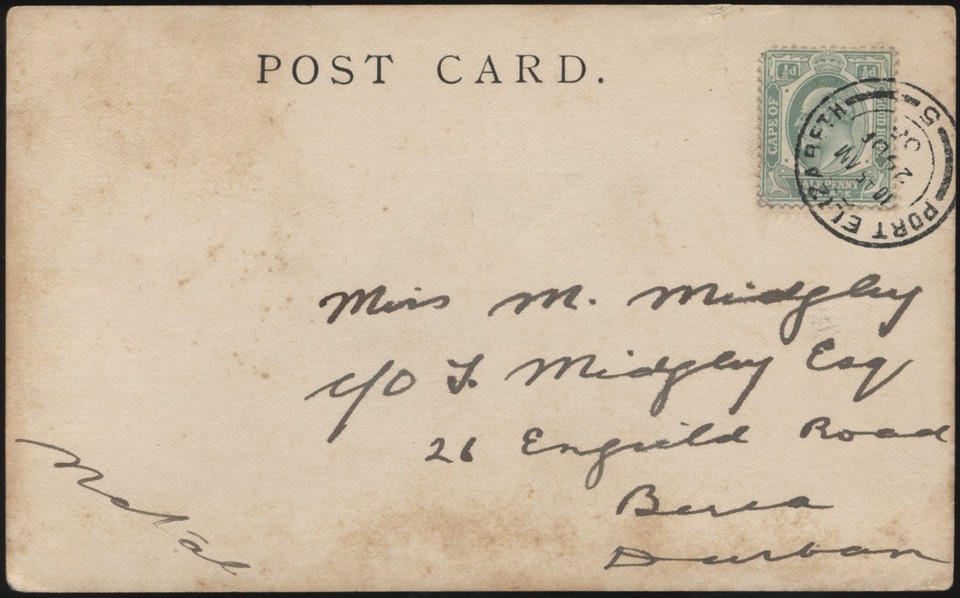 POST CARD.
½d ½d
CAPE OF
HALFPENNY
PORT ELIZABETH
10 45 AM
5
Miss M. Midgley
c/o T. Midgley Esq
26 Enfield Road
Berea
Durban
Natal